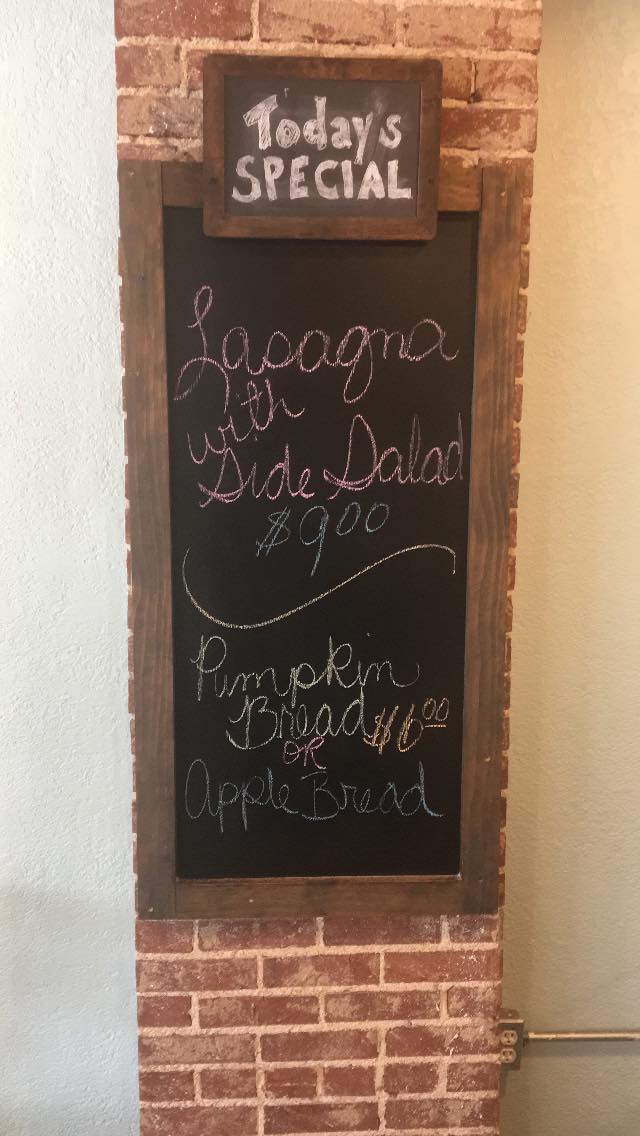 Today's
SPECIAL
Lasagna
with
Side Salad
$9.00
Pumpkin
Bread $6.00
OR
Apple Bread